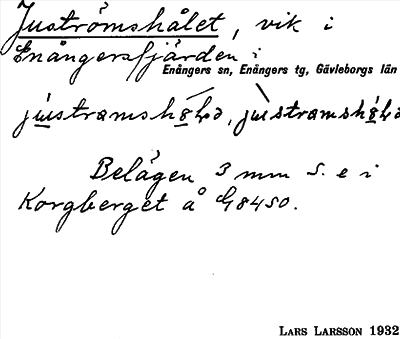 Juströmshålet, vik i
Enångersfjärden i
Enångers sn, Enångers tg, Gävleborgs län
Belägen 3 mm S. e i
Korgberget å G8450.
LARS LARSSON 1932